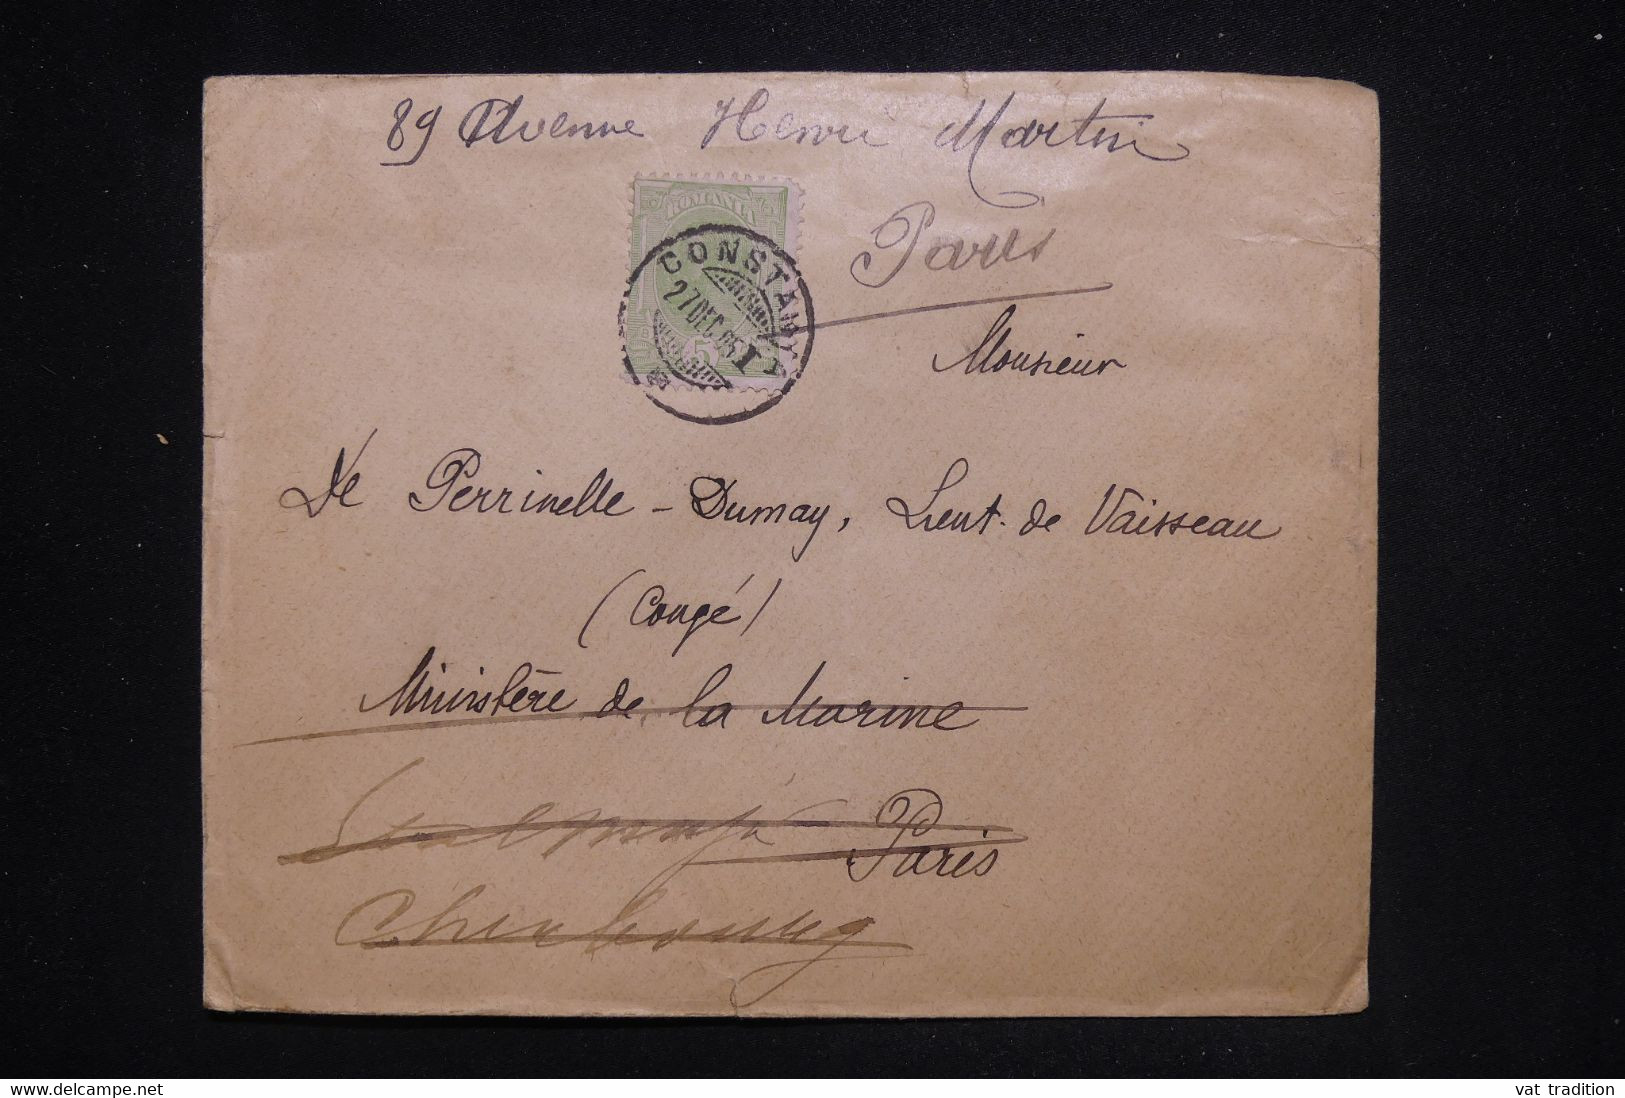 89 Avenue Henri Martin
Paris
ROMANIA
CONSTANTA
27 DEC 95
5
Monsieur
De Perrinelle-Dumay, Lieut. de Vaisseau
(Congé)
Ministère de la Marine
Paris
Cherbourg
delcampe.net
vat_tradition